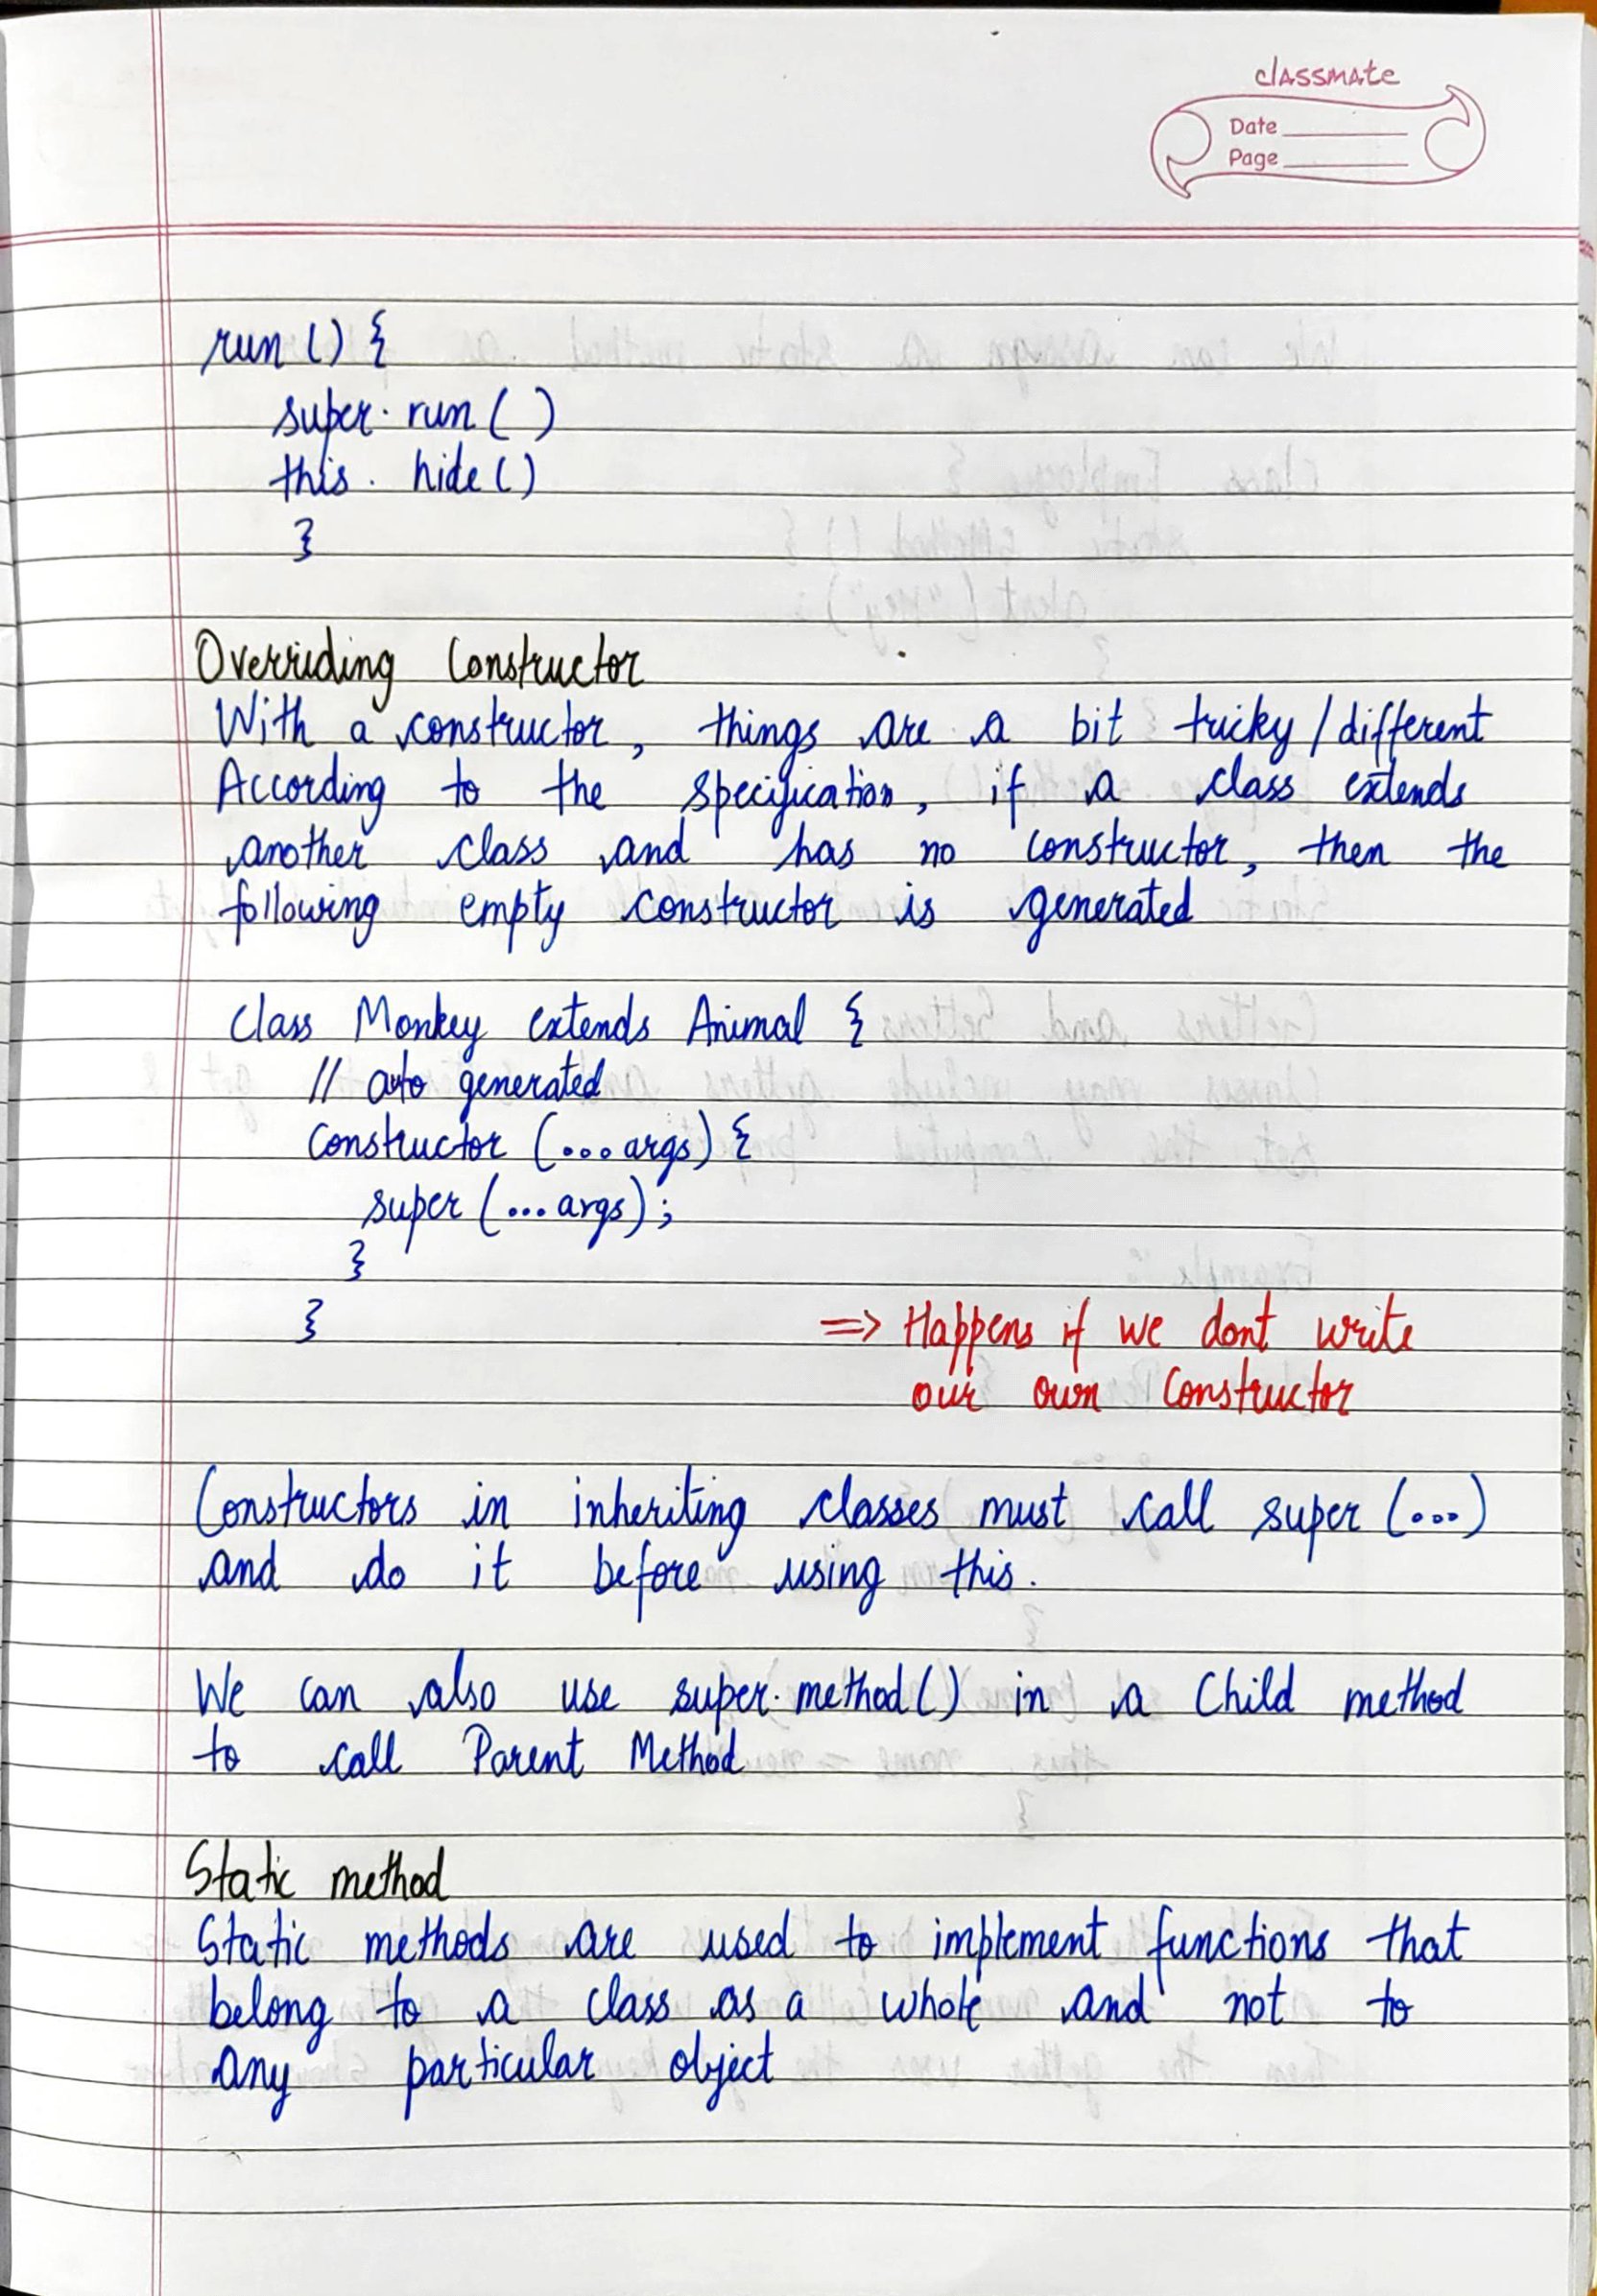 classmate
Date
Page
run () {
super. run ( )
this. hide ()
}
Overriding Constructor
With a constructor, things are a bit tricky / different
According to the specification, if a class extends
another class and has no constructor, then the
following empty constructor is generated
Class Monkey extends Animal {
// auto generated
Constructor (... args) {
super (... args);
}
}
=> Happens if we dont write
our own Constructor
Constructors in inheriting classes must call super (...)
and do it before using this.
We can also use super. method () in a Child method
to call Parent Method
Static method
Static methods are used to implement functions that
belong to a class as a whole and not to
any particular object